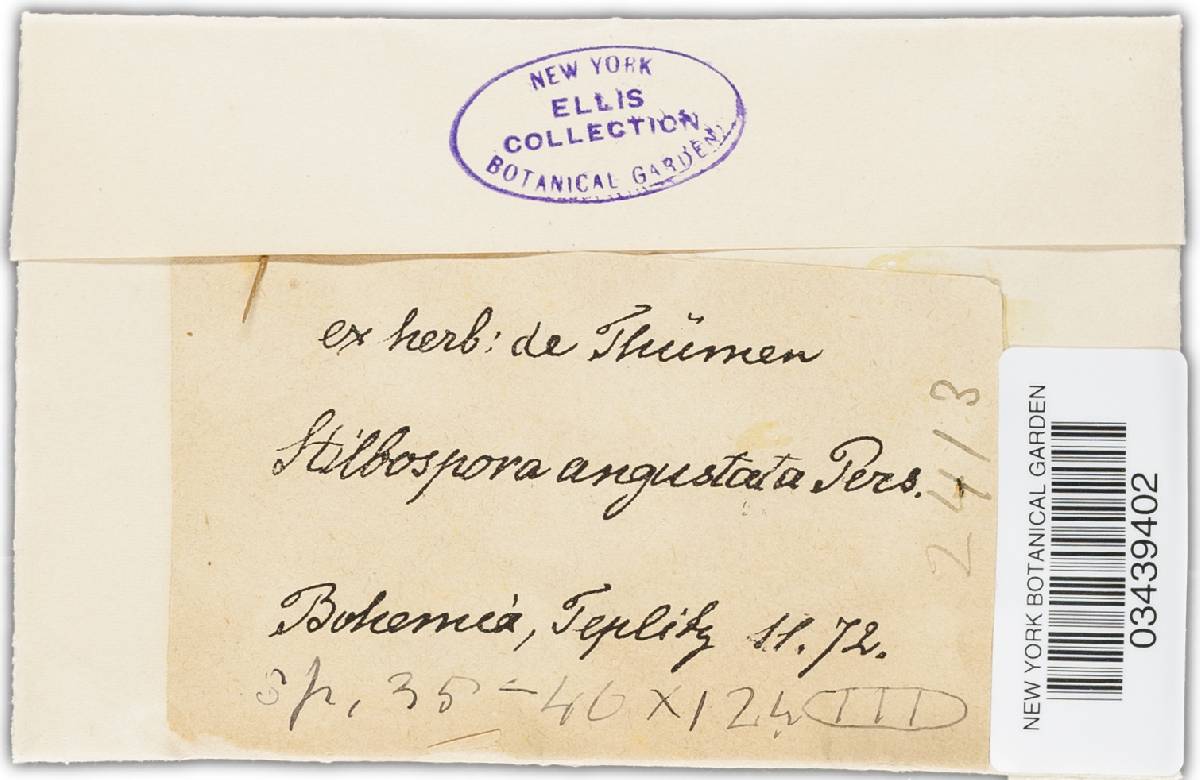 NEW YORK
ELLIS
COLLECTION
BOTANICAL GARDEN
ex herb: de Thümen
Stilbospora angustata Pers.
Bohemia, Teplitz 11. 72.
Sp, 35-40 X 12
2413
NEW YORK BOTANICAL GARDEN
03439402